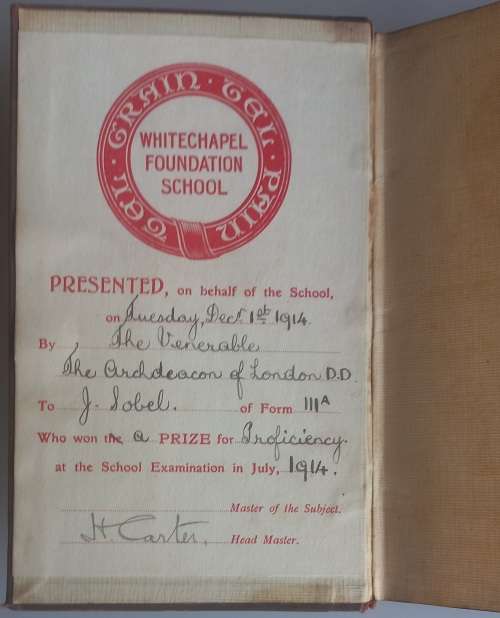 TEL · GRAIN · TEL · PAIN
WHITECHAPEL
FOUNDATION
SCHOOL
PRESENTED, on behalf of the School,
on Tuesday, Decr. 1st 1914.
By, The Venerable
The Archdeacon of London D.D.
To J. Sobel. of Form IIIA
Who won the a PRIZE for Proficiency.
at the School Examination in July, 1914.
Master of the Subject.
H. Carter, Head Master.